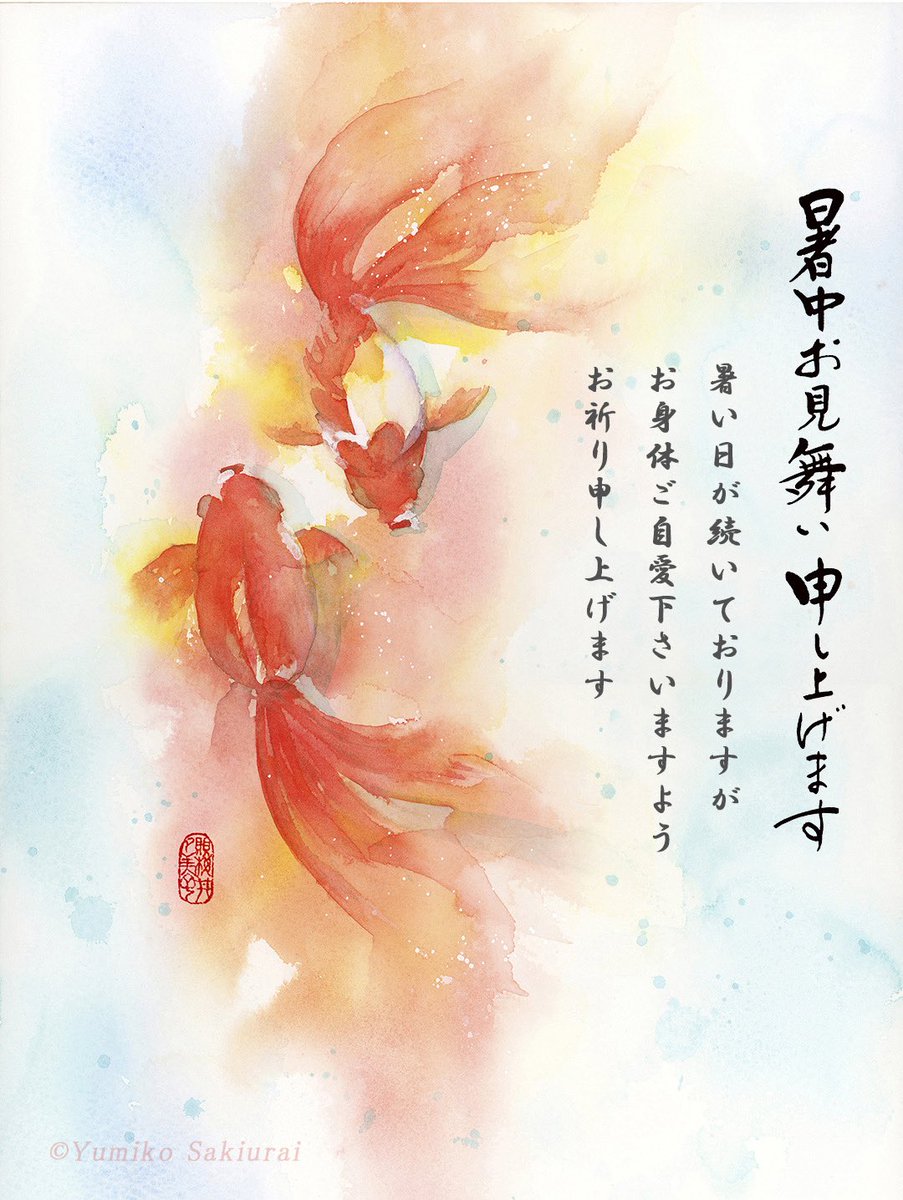 暑中お見舞い申し上げます
暑い日が続いておりますが
お身体ご自愛下さいますよう
お祈り申し上げます
©Yumiko Sakiurai